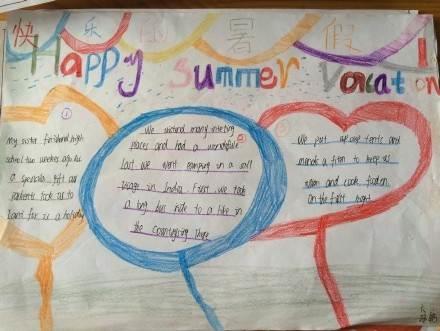 快乐的暑假
Happy Summer Vacation
①
My sister finished high
school two weekes ago. As
a special gift our
parents took us to
for a holiday
②
We visited many
places and had a wonderful
Last we went camping in a small
village in India. First, we took
a long bus ride to a lake in
the countryside
③
We put up our tents and
made a fire to keep us
warm and cook food on
on the first night